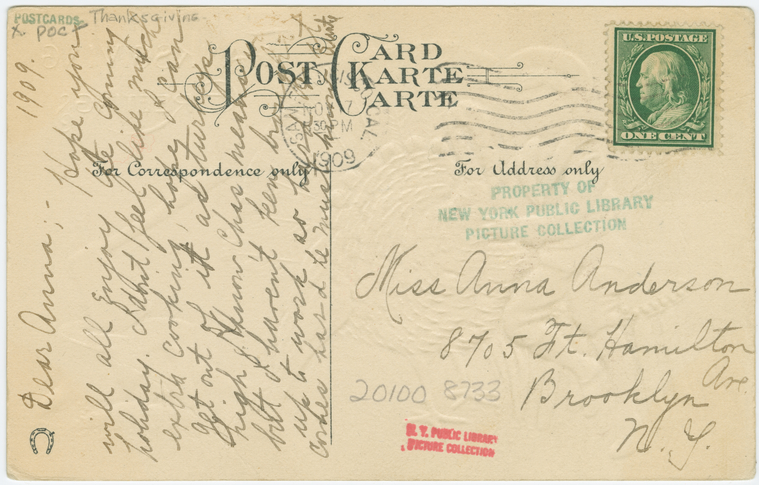 POSTCARDS Thanksgiving
X POC
1909.
POST CARD
KARTE
CARTE
CAL
30 PM
1909
U.S. POSTAGE
ONE CENT
For Correspondence only
For Address only
PROPERTY OF
NEW YORK PUBLIC LIBRARY
PICTURE COLLECTION
Dear Anna; - Hope you
will all enjoy the coming
holiday. I don't feel like much
extra cooking, hope I can
get out of it as turkeys
high & know Chas means
but I haven't been
up to work so
comes hard
Miss Anna Anderson
8705 Ft. Hamilton
Ave.
Brooklyn
N. Y.
20100 8733
N. Y. PUBLIC LIBRARY
PICTURE COLLECTION